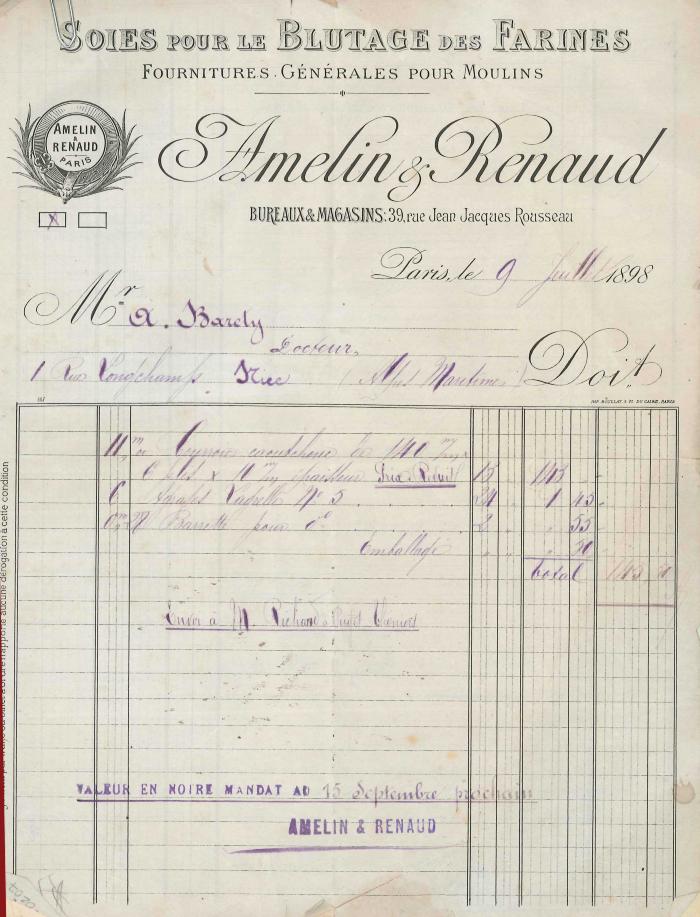 SOIES POUR LE BLUTAGE DES FARINES
FOURNITURES GÉNÉRALES POUR MOULINS
AMELIN
&
RENAUD
PARIS
Amelin & Renaud
BUREAUX & MAGASINS: 39, rue Jean Jacques Rousseau
Paris, le 9 Juillet 1898
Mr A. Barety
Docteur,
1 Rue Longchamps. Nice (Alpes Maritimes) Doit
11 m caoutchouc de 140 m/m
6 plis x 10 m/m épaisseur Prix Réduit 13 143
6 No 5 24 1 45
Barrette pour do 2 55
Emballage 50
Total 145 50
Envoi à M.
VALEUR EN NOTRE MANDAT AU 15 Septembre prochain
AMELIN & RENAUD
aucune dérogation à cette condition